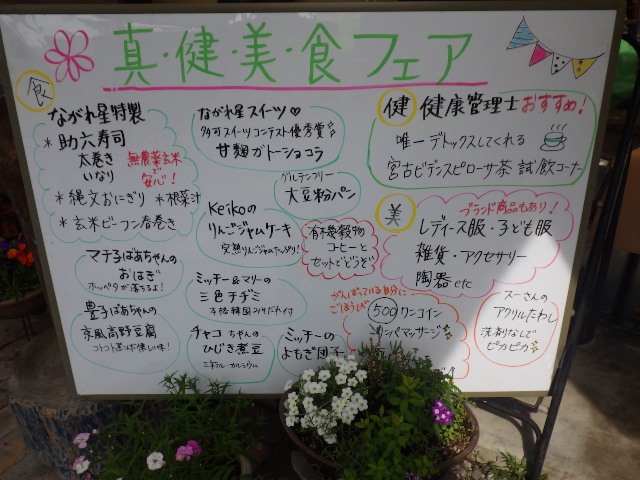 真・健・美・食フェア
食
ながれ星特製
*助六寿司
太巻き
いなり
無農薬玄米
で
安心!
*縄文おにぎり *根菜汁
*玄米ビーフン春巻き
マチ子ばあちゃんの
おはぎ
ホッペタが落ちるよ!
豊子ばあちゃんの
京風高野豆腐
コトコト煮込だ懐しい味!
ながれ星スイーツ♡
多可スイーツコンテスト優秀賞
甘麹ガトーショコラ
グルテンフリー
大豆粉パン
Keikoの
りんごジャムケーキ
完熟りんごジャムたっぷり!
有機穀物
コーヒーと
セットでどうぞ
ミッチー&マリーの
三色チヂミ
本格韓国コチだれ付
チャコちゃんの
ひじき煮豆
ミネラル・カルシウム
ミッチーの
よもぎ団子
健 健康管理士おすすめ!
唯一デトックスしてくれる
宮古ビデンスピローサ茶 試飲コーナー
美
ブランド商品もあり!
レディース服・子ども服
雑貨・アクセサリー
陶器 etc
がんばっている自分に
ごほうび
500ワンコイン
ンパマッサージ
スーさんの
アクリルたわし
洗剤なしで
ピカピカ